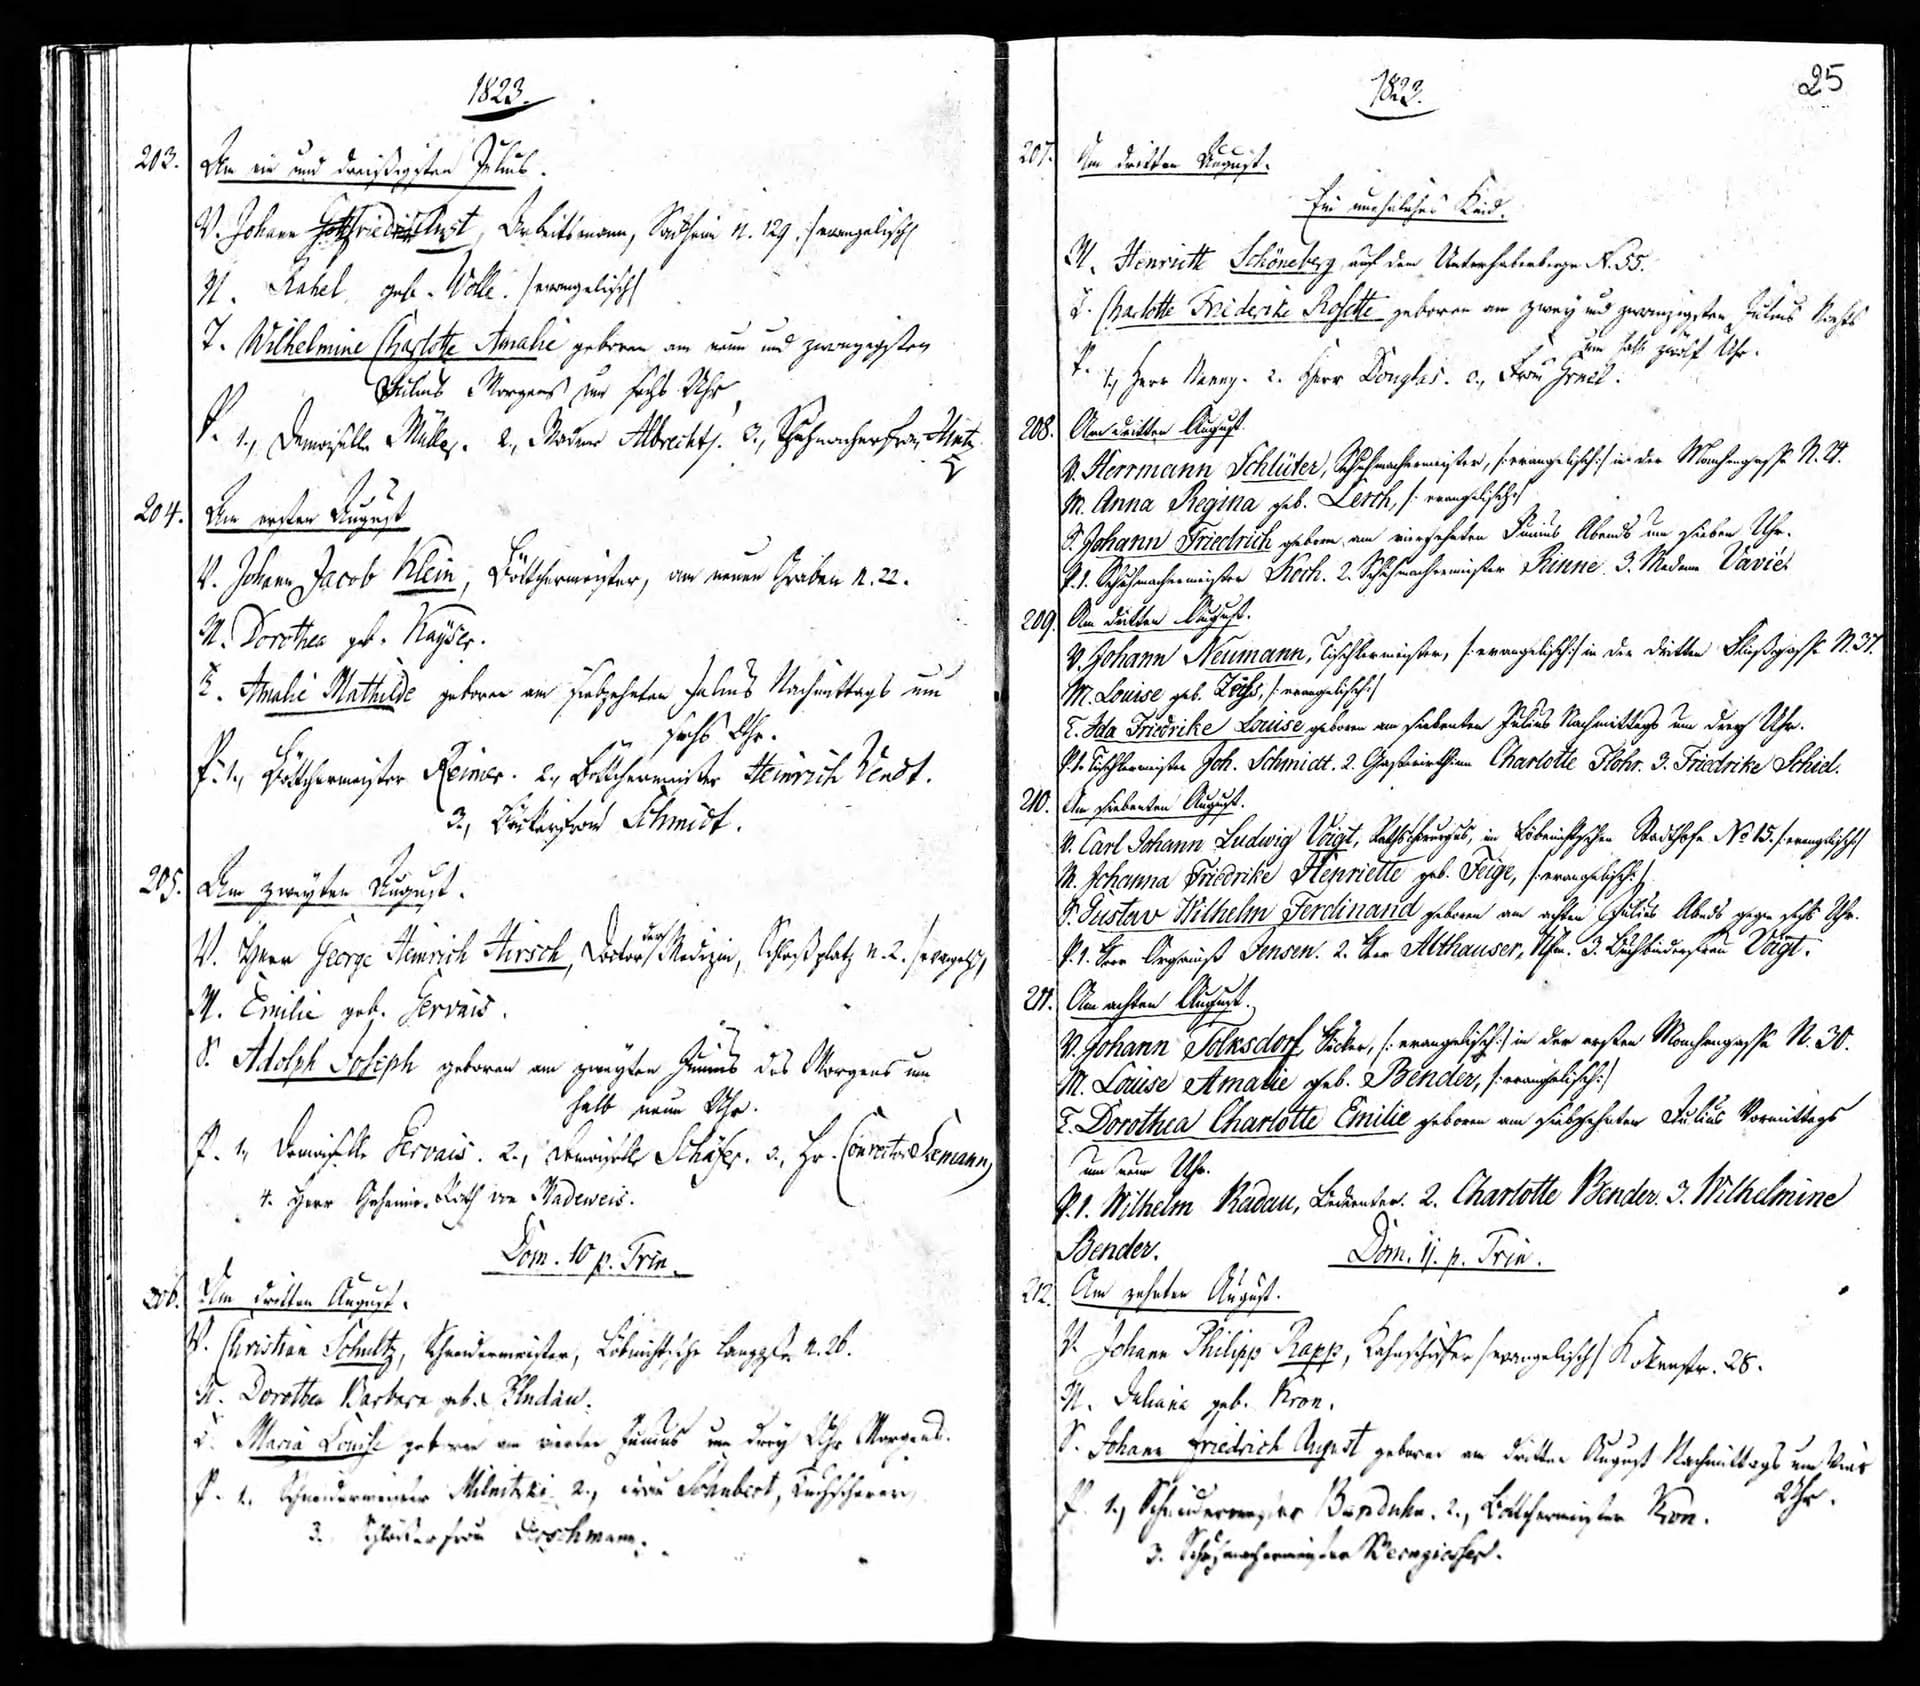 1823.
203. Am ein und dreißigsten Julius.
V. Johann Gottfried Aust, Arbeitsmann, Sackheim N. 129. /:evangelisch:/
M. Rahel geb. Wolle. /:evangelisch:/
T. Wilhelmine Charlotte Amalie geboren am neun und zwanzigsten
Julius Morgens um sechs Uhr.
P. 1., Demoiselle Müller. 2., Madame Albrecht. 3., Schuhmacherfrau Hintz.
204. Am ersten August
V. Johann Jacob Klein, Böttchermeister, am neuen Graben N. 22.
M. Dorothea geb. Kayser.
T. Amalie Mathilde geboren am siebzehnten Julius Nachmittags um
sechs Uhr.
P. 1., Böttchermeister Reimer. 2., Böttchermeister Heinrich Wendt.
3., Bäckerfrau Schmidt.
205. Am zweyten August.
V. Herr George Heinrich Hirsch, Doctor der Medizin, Schloßplatz N. 2. /:evangel:/
M. Emilie geb. Gervais.
S. Adolph Joseph geboren am zweyten Junius des Morgens um
halb neun Uhr.
P. 1., Demoiselle Gervais. 2., Demoiselle Schäfer. 3., Hr. Conrector Seemann,
4. Herr Geheime-Rath von Madeweis.
Dom. 10 p. Trin.
206. Am dritten August.
V. Christian Schultz, Schneidermeister, Löbnichtsche Langgße N. 26.
M. Dorothea Barbara geb. Bludau.
T. Maria Louise geboren am vierten Junius um drey Uhr Morgens.
P. 1. Schneidermeister Milnitzki 2., Frau Schubert, Tuchscherer,
3. frau Dorschmann.
1823.
25
207. Am dritten August.
Ein uneheliches Kind.
M. Henriette Schöneberg, auf dem Unterhaberberge N. 55.
T. Charlotte Friederike Rosette geboren am zwey und zwanzigsten Julius Nachts
um halb zwölf Uhr.
P. 1., Herr Nanny. 2. Herr Douglas. 3., Frau
208. Am dritten August.
V. Herrmann Schlüter, Schuhmachermeister, /:evangelisch:/ in der Monchengasse N. 21.
M. Anna Regina geb. Lerch, /:evangelisch:/
S. Johann Friedrich geboren am vierzehnten Junius Abends um sieben Uhr.
P. 1. Schuhmachermeister Koch. 2. Schuhmachermeister Rinne. 3. Madame Vavié.
209. Am dritten August.
V. Johann Neumann, Tischlermeister, /:evangelisch:/ in der dritten Fließgasse N. 37.
M. Louise geb. /:evangelisch:/
T. Ida Friedrike Louise geboren am siebenten Julius Nachmittags um drey Uhr.
P. 1. Tischlermeister Joh. Schmidt. 2. Gastwirthinn Charlotte Rohr. 3. Friedrike Schid.
210. Am siebenten August.
V. Carl Johann Ludwig Voigt, Rathschirurgus, im Löbenichtschen Stadthofe No 15. /:evangelisch:/
M. Johanna Friedrike Henriette geb. Feige, /:evangelisch:/
S. Gustav Wilhelm Ferdinand geboren am achten Julius Abends gegen sechs Uhr.
P. 1. Herr Organist Jensen. 2. Herr Althauser, Kfm. 3. Buchbinderfrau Voigt.
211. Am achten August.
V. Johann Tolksdorf, Bäcker, /:evangelisch:/ in der ersten Monchengasse N. 30.
M. Louise Amalie geb. Bender, /:evangelisch:/
T. Dorothea Charlotte Emilie geboren am siebzehnten Julius Vormittags
um neun Uhr.
P. 1. Wilhelm Radau, 2. Charlotte Bender. 3. Wilhelmine
Bender.
Dom. 11. p. Trin.
212. Am zehnten August.
V. Johann Philipp Rapp, Kahnschiffer /:evangelisch:/ 28.
M. Juliana geb. Kron.
S. Johann Friedrich August geboren am dritten August Nachmittags um vier
Uhr.
P. 1., Schneidermeister 2., Böttchermeister Kron.
3. Schuhmachermeister